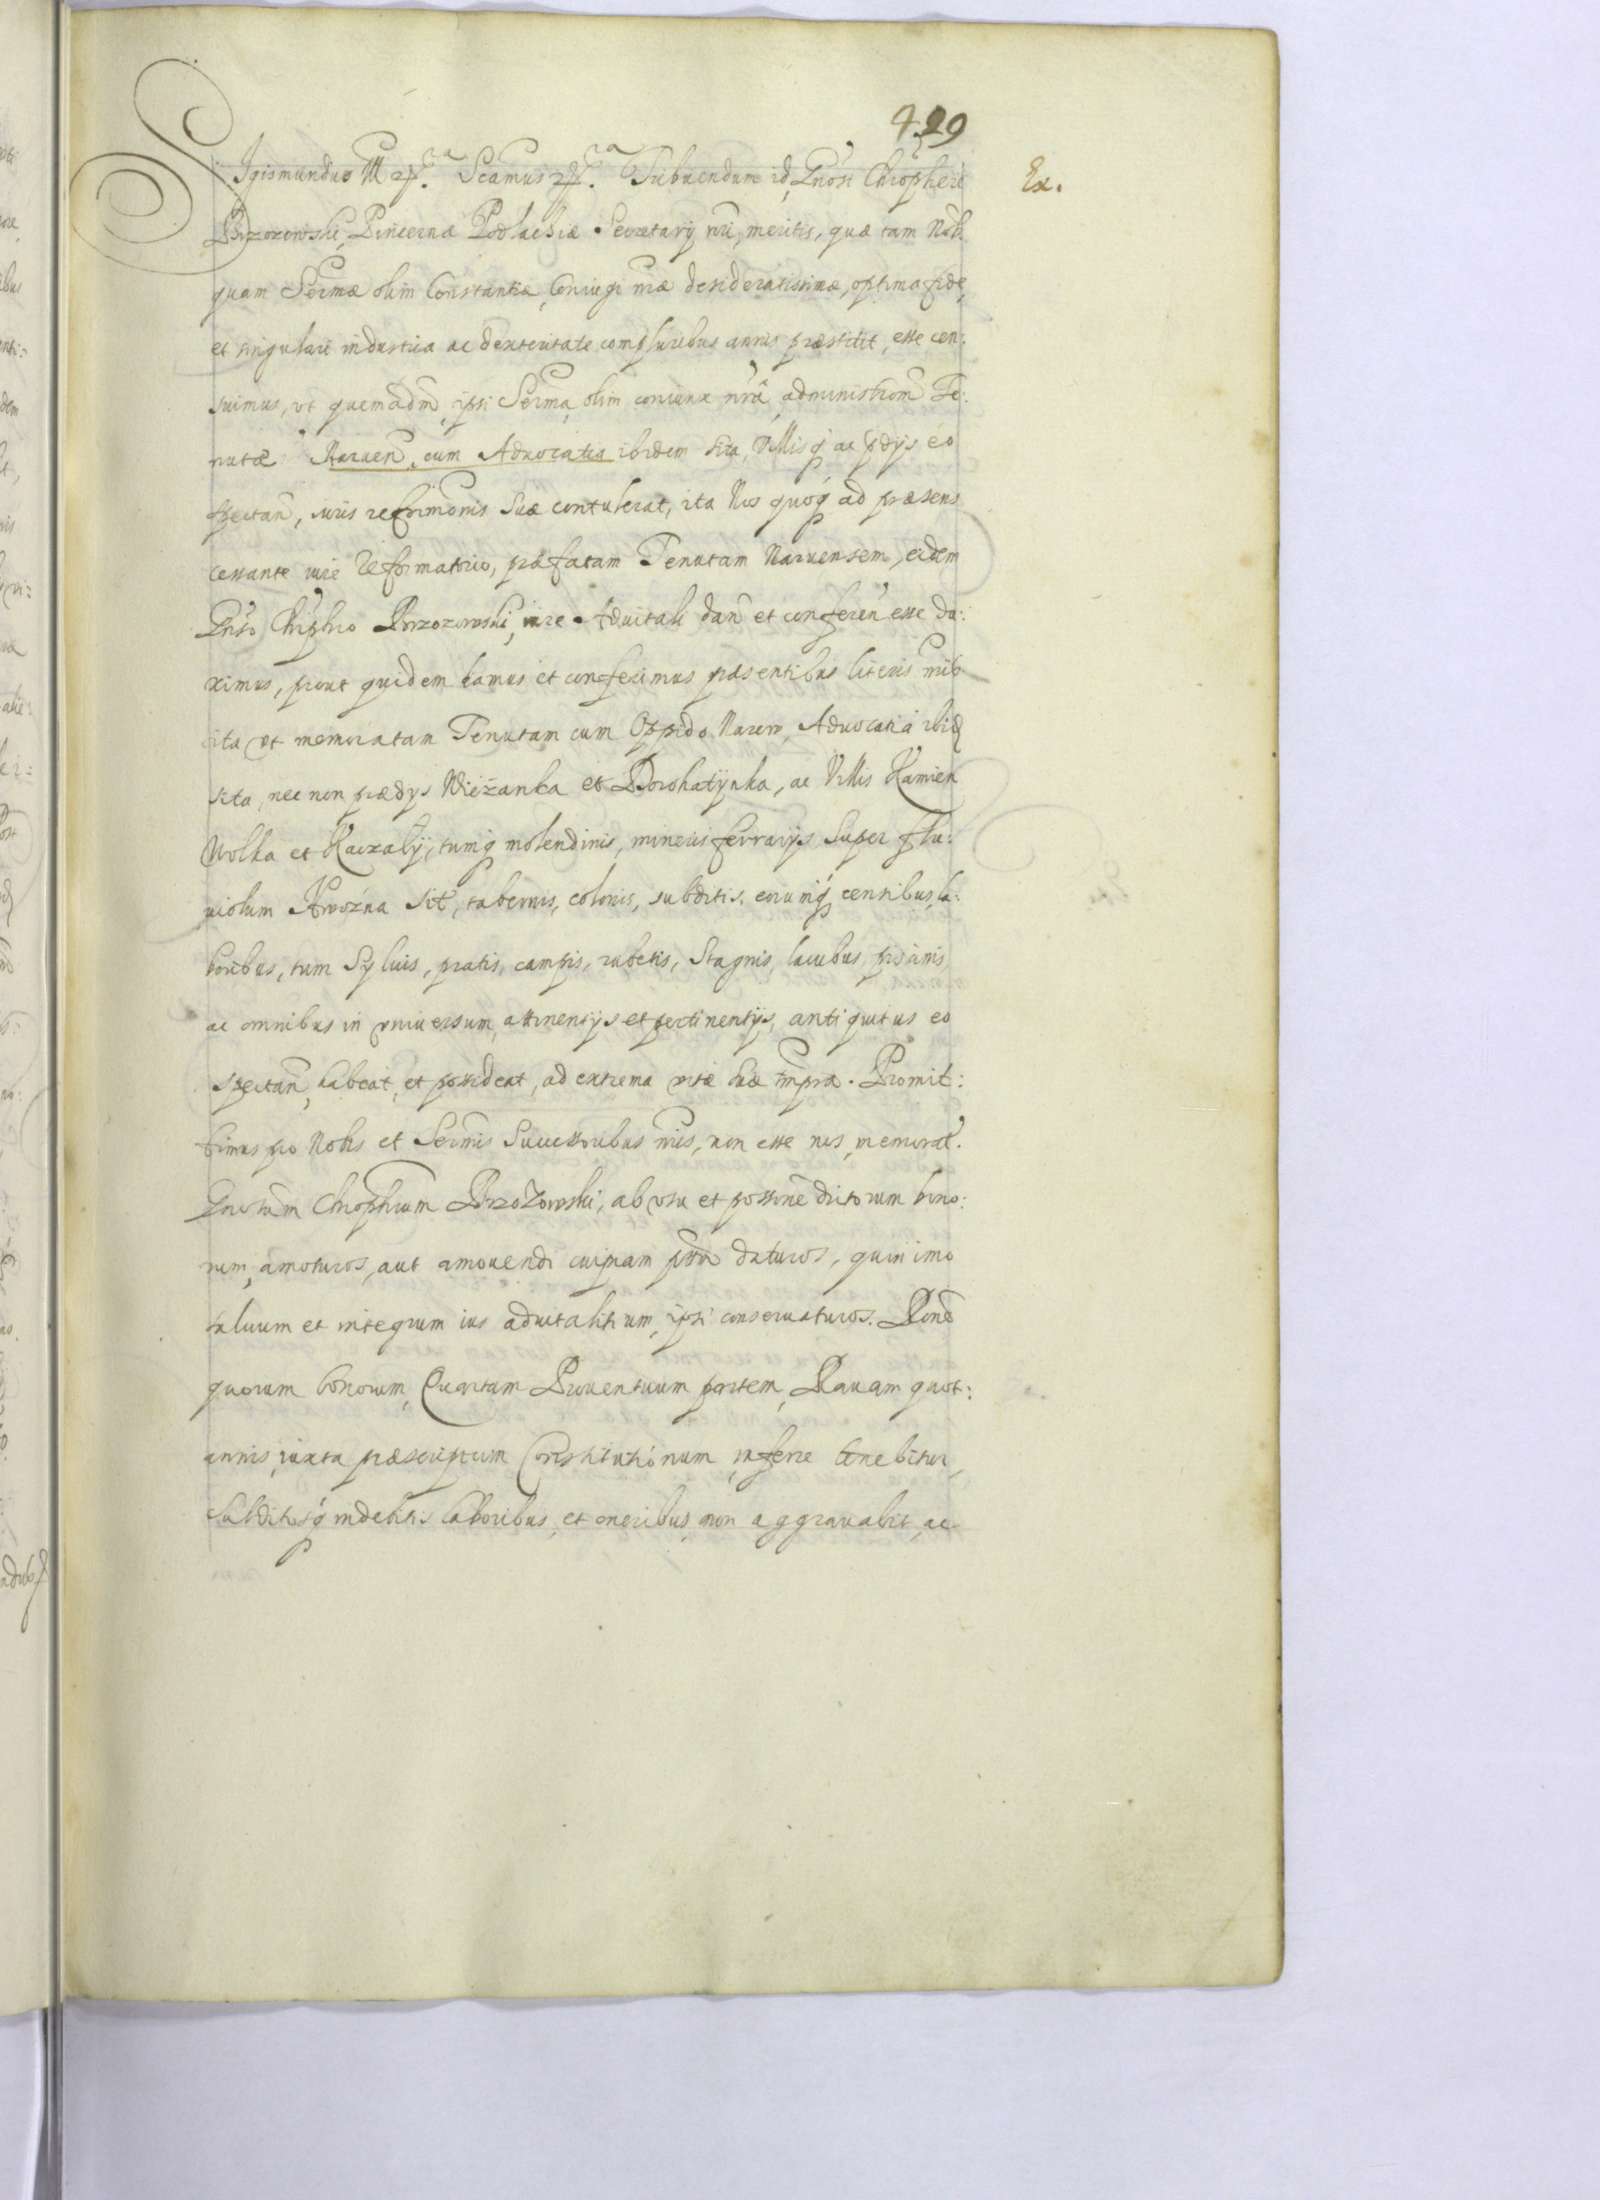 429
Ex.
Sigismundus III etc. Scamus etc. Tribuendum id, Gnosi Chrophori
Brzozowski, Pincernæ Podlachiæ Secretarij nri, meritis, quæ tam Nob.
quam Sermæ olim Constantiæ, Coniugi nræ desideratissimæ, optima fide,
et singulari industria ac dexteritate compluribus annis præstitit, esse cen:
suimus, vt quemadm, ipsi Serma, olim coniunx nra, administrom Te:
nutæ Naruen, cum Aduocatia ibidem sita, Villisq ac pdijs eo
spectan, iuris reformonis suæ contulerat, ita Nos quoq ad præsens
cessante iure reformatorio, præfatam Tenutam Naruensem, eidem
Gnso Chrphro Brzozowski, iure Aduitali dan et conferen esse du:
ximus, prout quidem damus et conferimus præsentibus literis nris
ita vt memoratam Tenutam cum Oppido Narew, Aduocatia ibid
sita, nec non prædijs Wieżanka et Dorohatÿnka, ac Villis Kamien
Wolka et Kaczałÿ, tumq molendinis, mineris ferrarijs super flu:
uiolum Hwożna sit, tabernis, colonis, subditis, eorumq censibus, la:
boribus, tum syluis, pratis, campis, rubetis, stagnis, lacubus, piscinis,
ac omnibus in vniuersum, attinentijs et pertinentijs, antiquitus eo
spectan, habeat, et possideat, ad extrema vitæ suæ tmpra. Promit:
timus pro Nobis et Sermis Successoribus nris, non esse nos, memorat.
Gnosum Chrophrum Brzozowski, ab vsu et possne dictorum bono:
rum, amoturos, aut amouendi cuipiam pttm daturos, quin imo
saluum et integrum ius aduitalitium, ipsi conseruaturos. De
quorum bonorum, Quartam Prouentuum partem, Rauam quot:
annis, iuxta præscriptum Constitutionum, inferre tenebitur,
Subditosq indebitis laboribus, et oneribus, non aggrauabit, ac